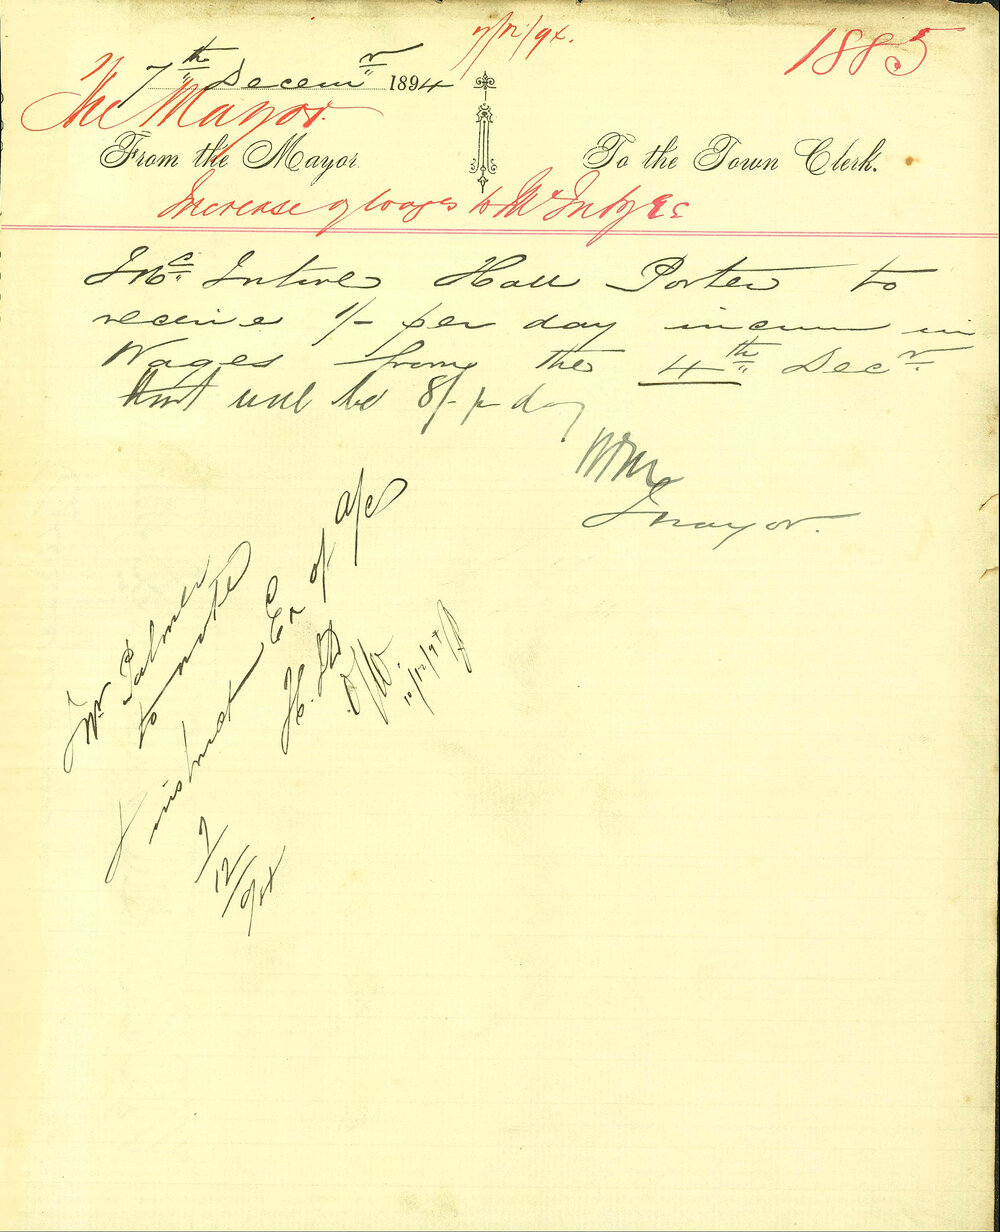 7/12/94.
1885
7th Decemr 1894
The Mayor.
From the Mayor
To the Town Clerk.
Increase of wages to McIntyre
McIntire Hall Porter to
receive 1/- per day in
Wages from the 4th Decr
that will be 8/- p day
Mayor.
Mr Palmer
to note
instruct Ex of a/c
7/12/94
10/12/94